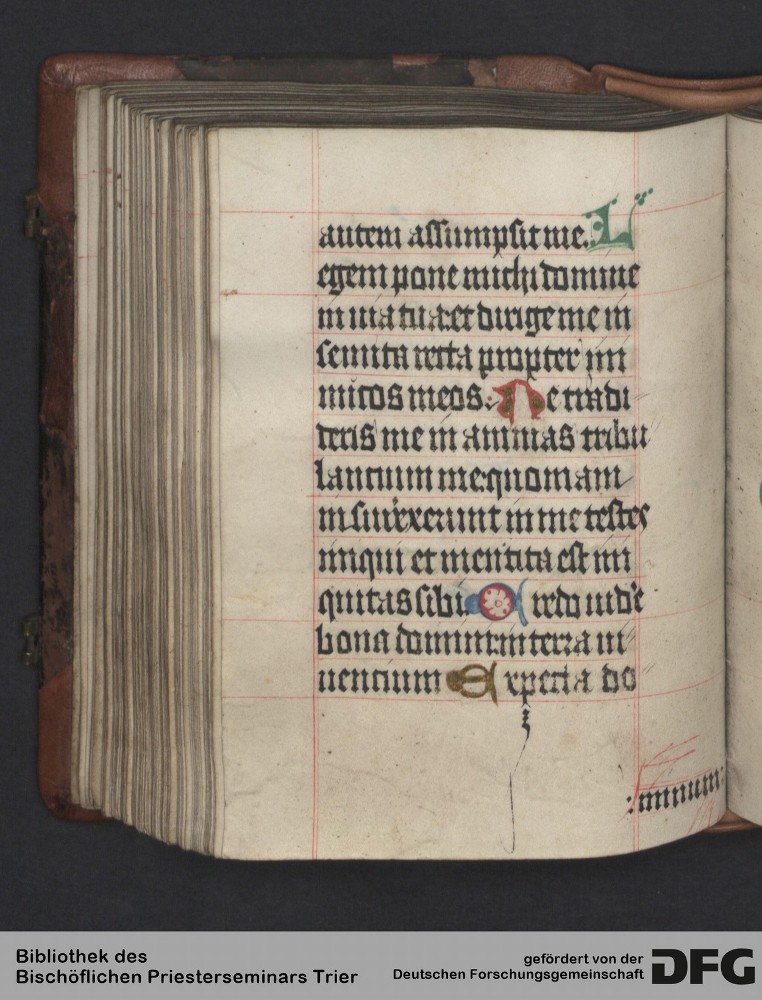 autem assumpsit me. L
egem pone michi domine
in uia tua: et dirige me in
semita recta propter ini
micos meos: Ne tradi
deris me in animas tribu
lancium me: quoniam
insurrexerunt in me testes
iniqui et mentita est ini
quitas sibi Credo uide
bona domini: in terra ui
uencium Expecta do
:minum:
Bibliothek des
Bischöflichen Priesterseminars Trier
gefördert von der
Deutschen Forschungsgemeinschaft
DFG